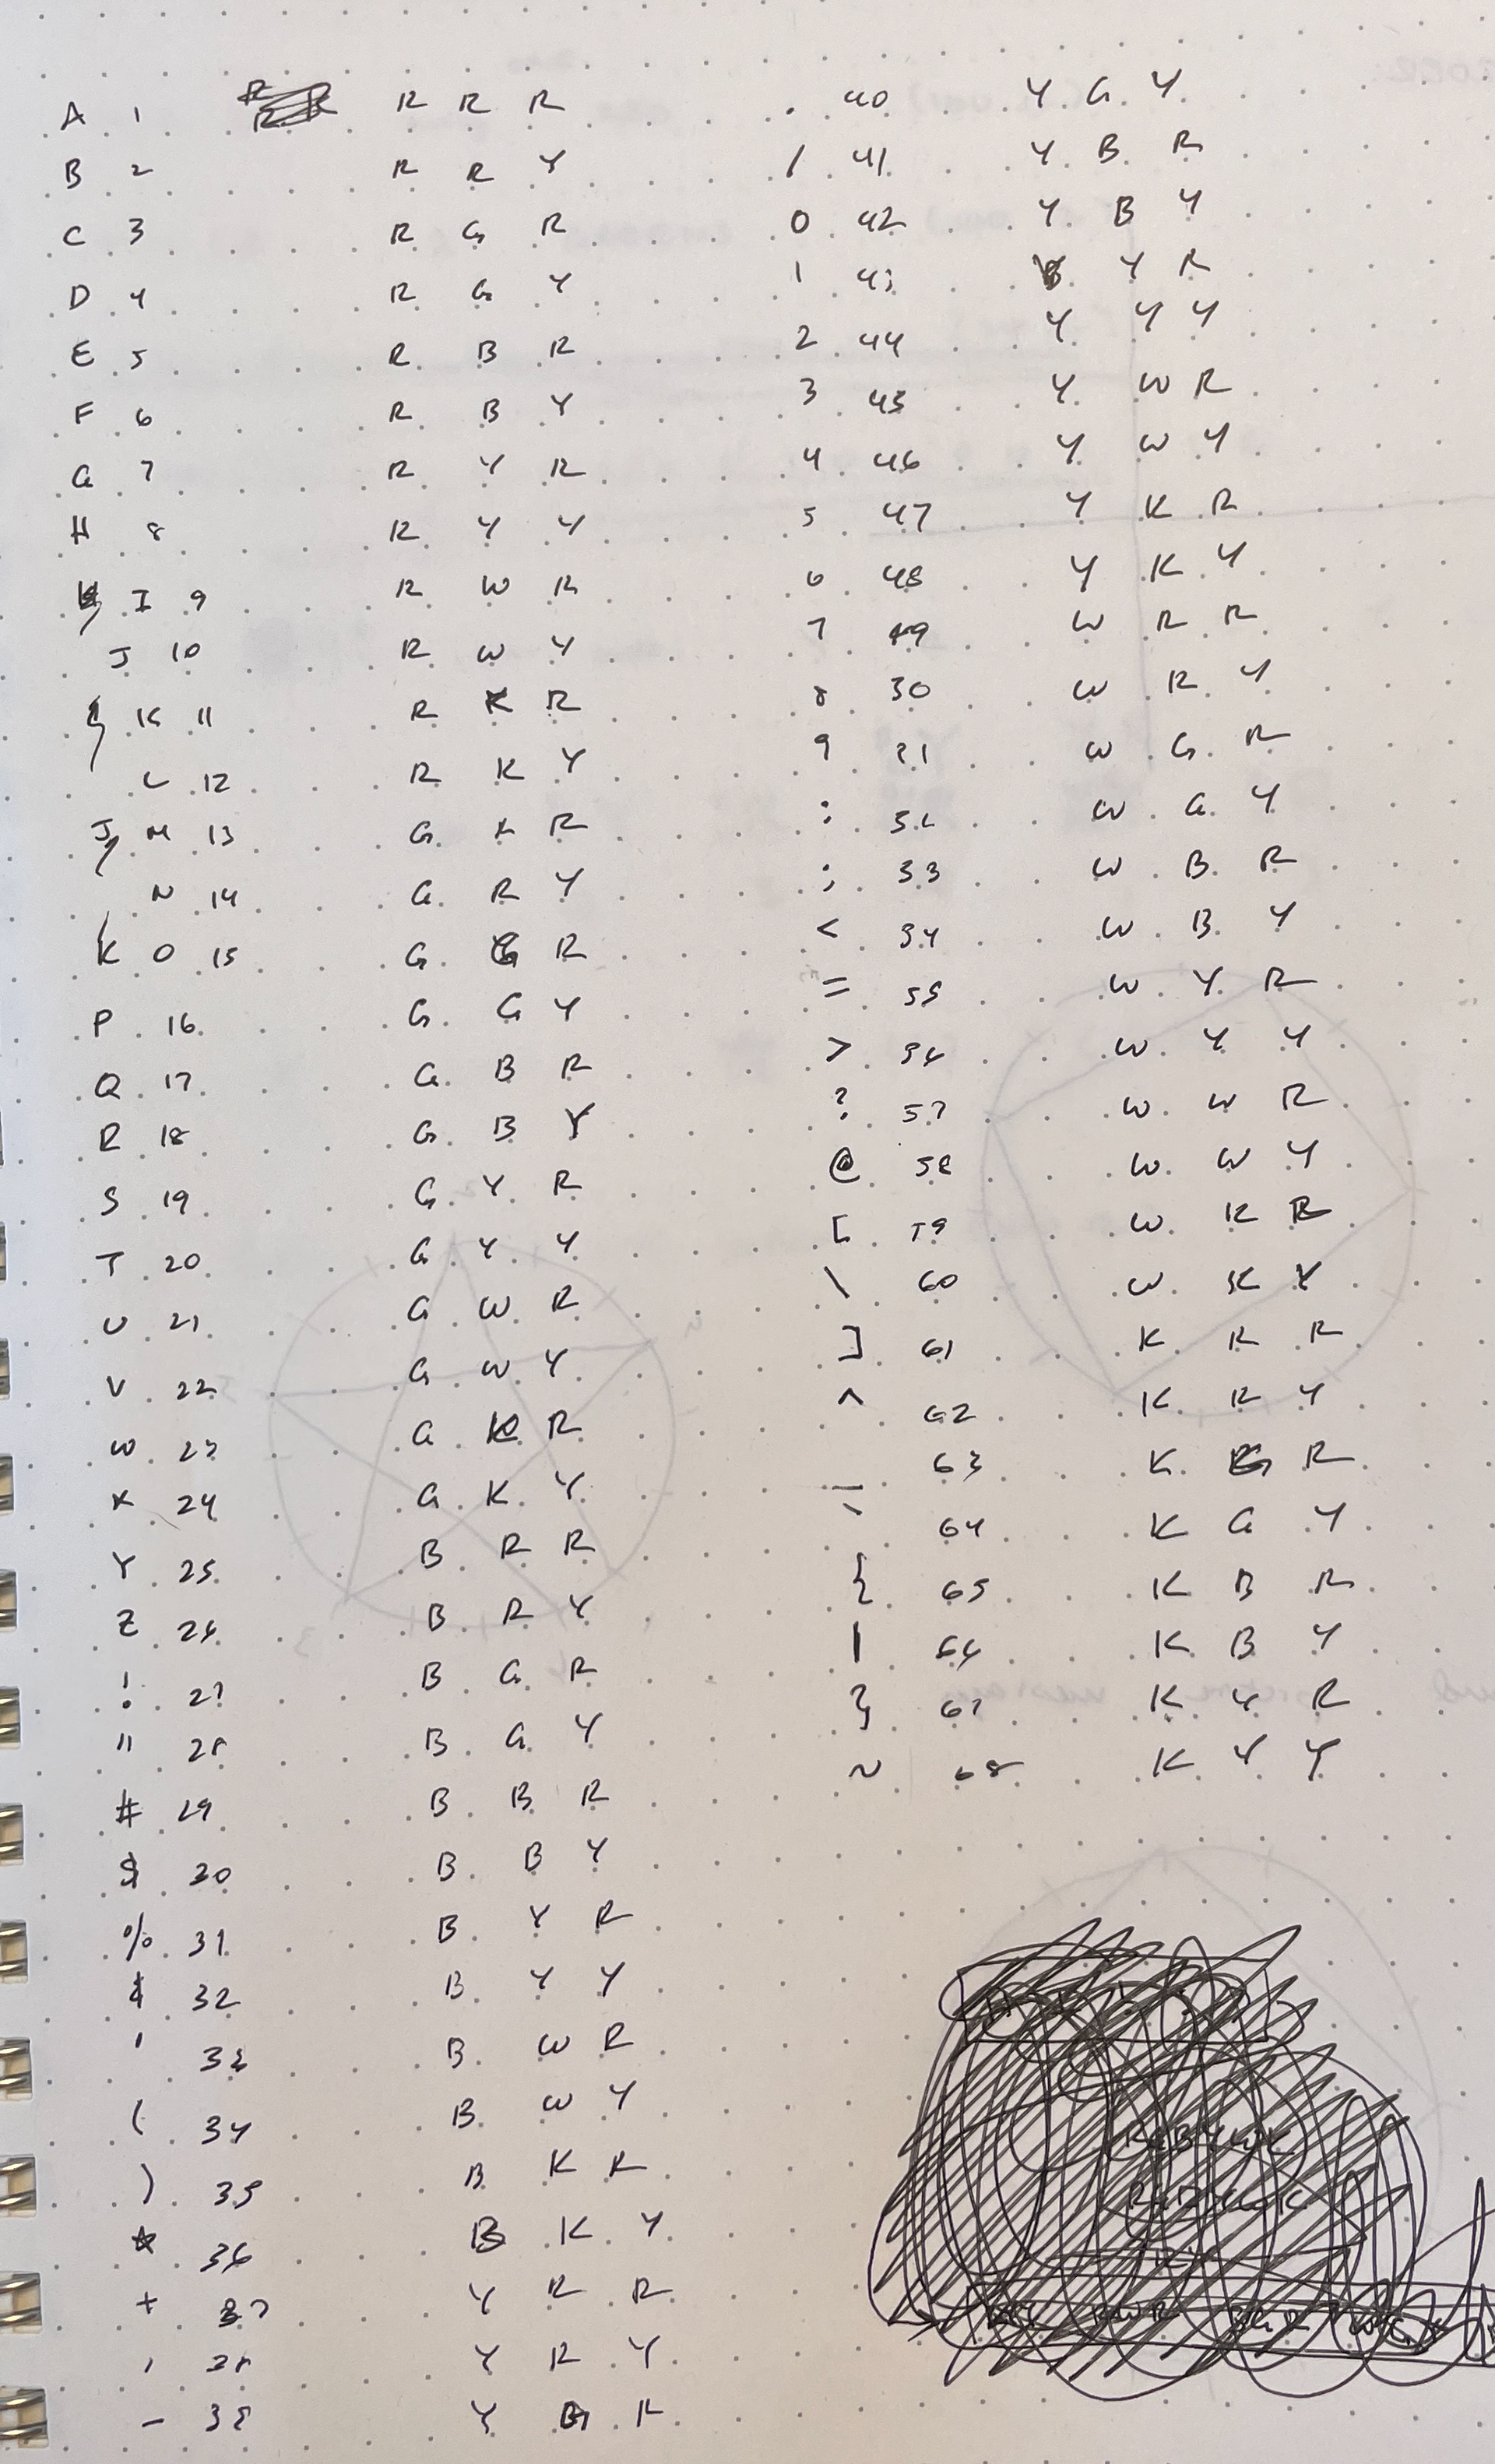 A 1 R R R
B 2 R R Y
C 3 R G R
D 4 R G Y
E 5 R B R
F 6 R B Y
G 7 R Y R
H 8 R Y Y
I 9 R W R
J 10 R W Y
K 11 R K R
L 12 R K Y
J M 13 G R
N 14 G R Y
K O 15 G G R
P 16 G G Y
Q 17 G B R
R 18 G B Y
S 19 G Y R
T 20 G Y Y
U 21 G W R
V 22 G W Y
W 23 G K R
X 24 G K Y
Y 25 B R R
Z 26 B R Y
! 27 B G R
" 28 B G Y
# 29 B B R
$ 30 B B Y
% 31 B Y R
& 32 B Y Y
' 33 B W R
( 34 B W Y
) 35 B K R
* 36 B K Y
+ 37 Y R R
, 38 Y R Y
- 39 Y G R
. 40 Y G Y
/ 41 Y B R
0 42 Y B Y
1 43 Y Y R
2 44 Y Y Y
3 45 Y W R
4 46 Y W Y
5 47 Y K R
6 48 Y K Y
7 49 W R R
8 50 W R Y
9 51 W G R
: 52 W G Y
; 53 W B R
< 54 W B Y
= 55 W Y R
> 56 W Y Y
? 57 W W R
@ 58 W W Y
[ 59 W K R
\ 60 W K Y
] 61 K R R
^ 62 K R Y
_ 63 K G R
` 64 K G Y
{ 65 K B R
| 66 K B Y
} 67 K Y R
~ 68 K Y Y